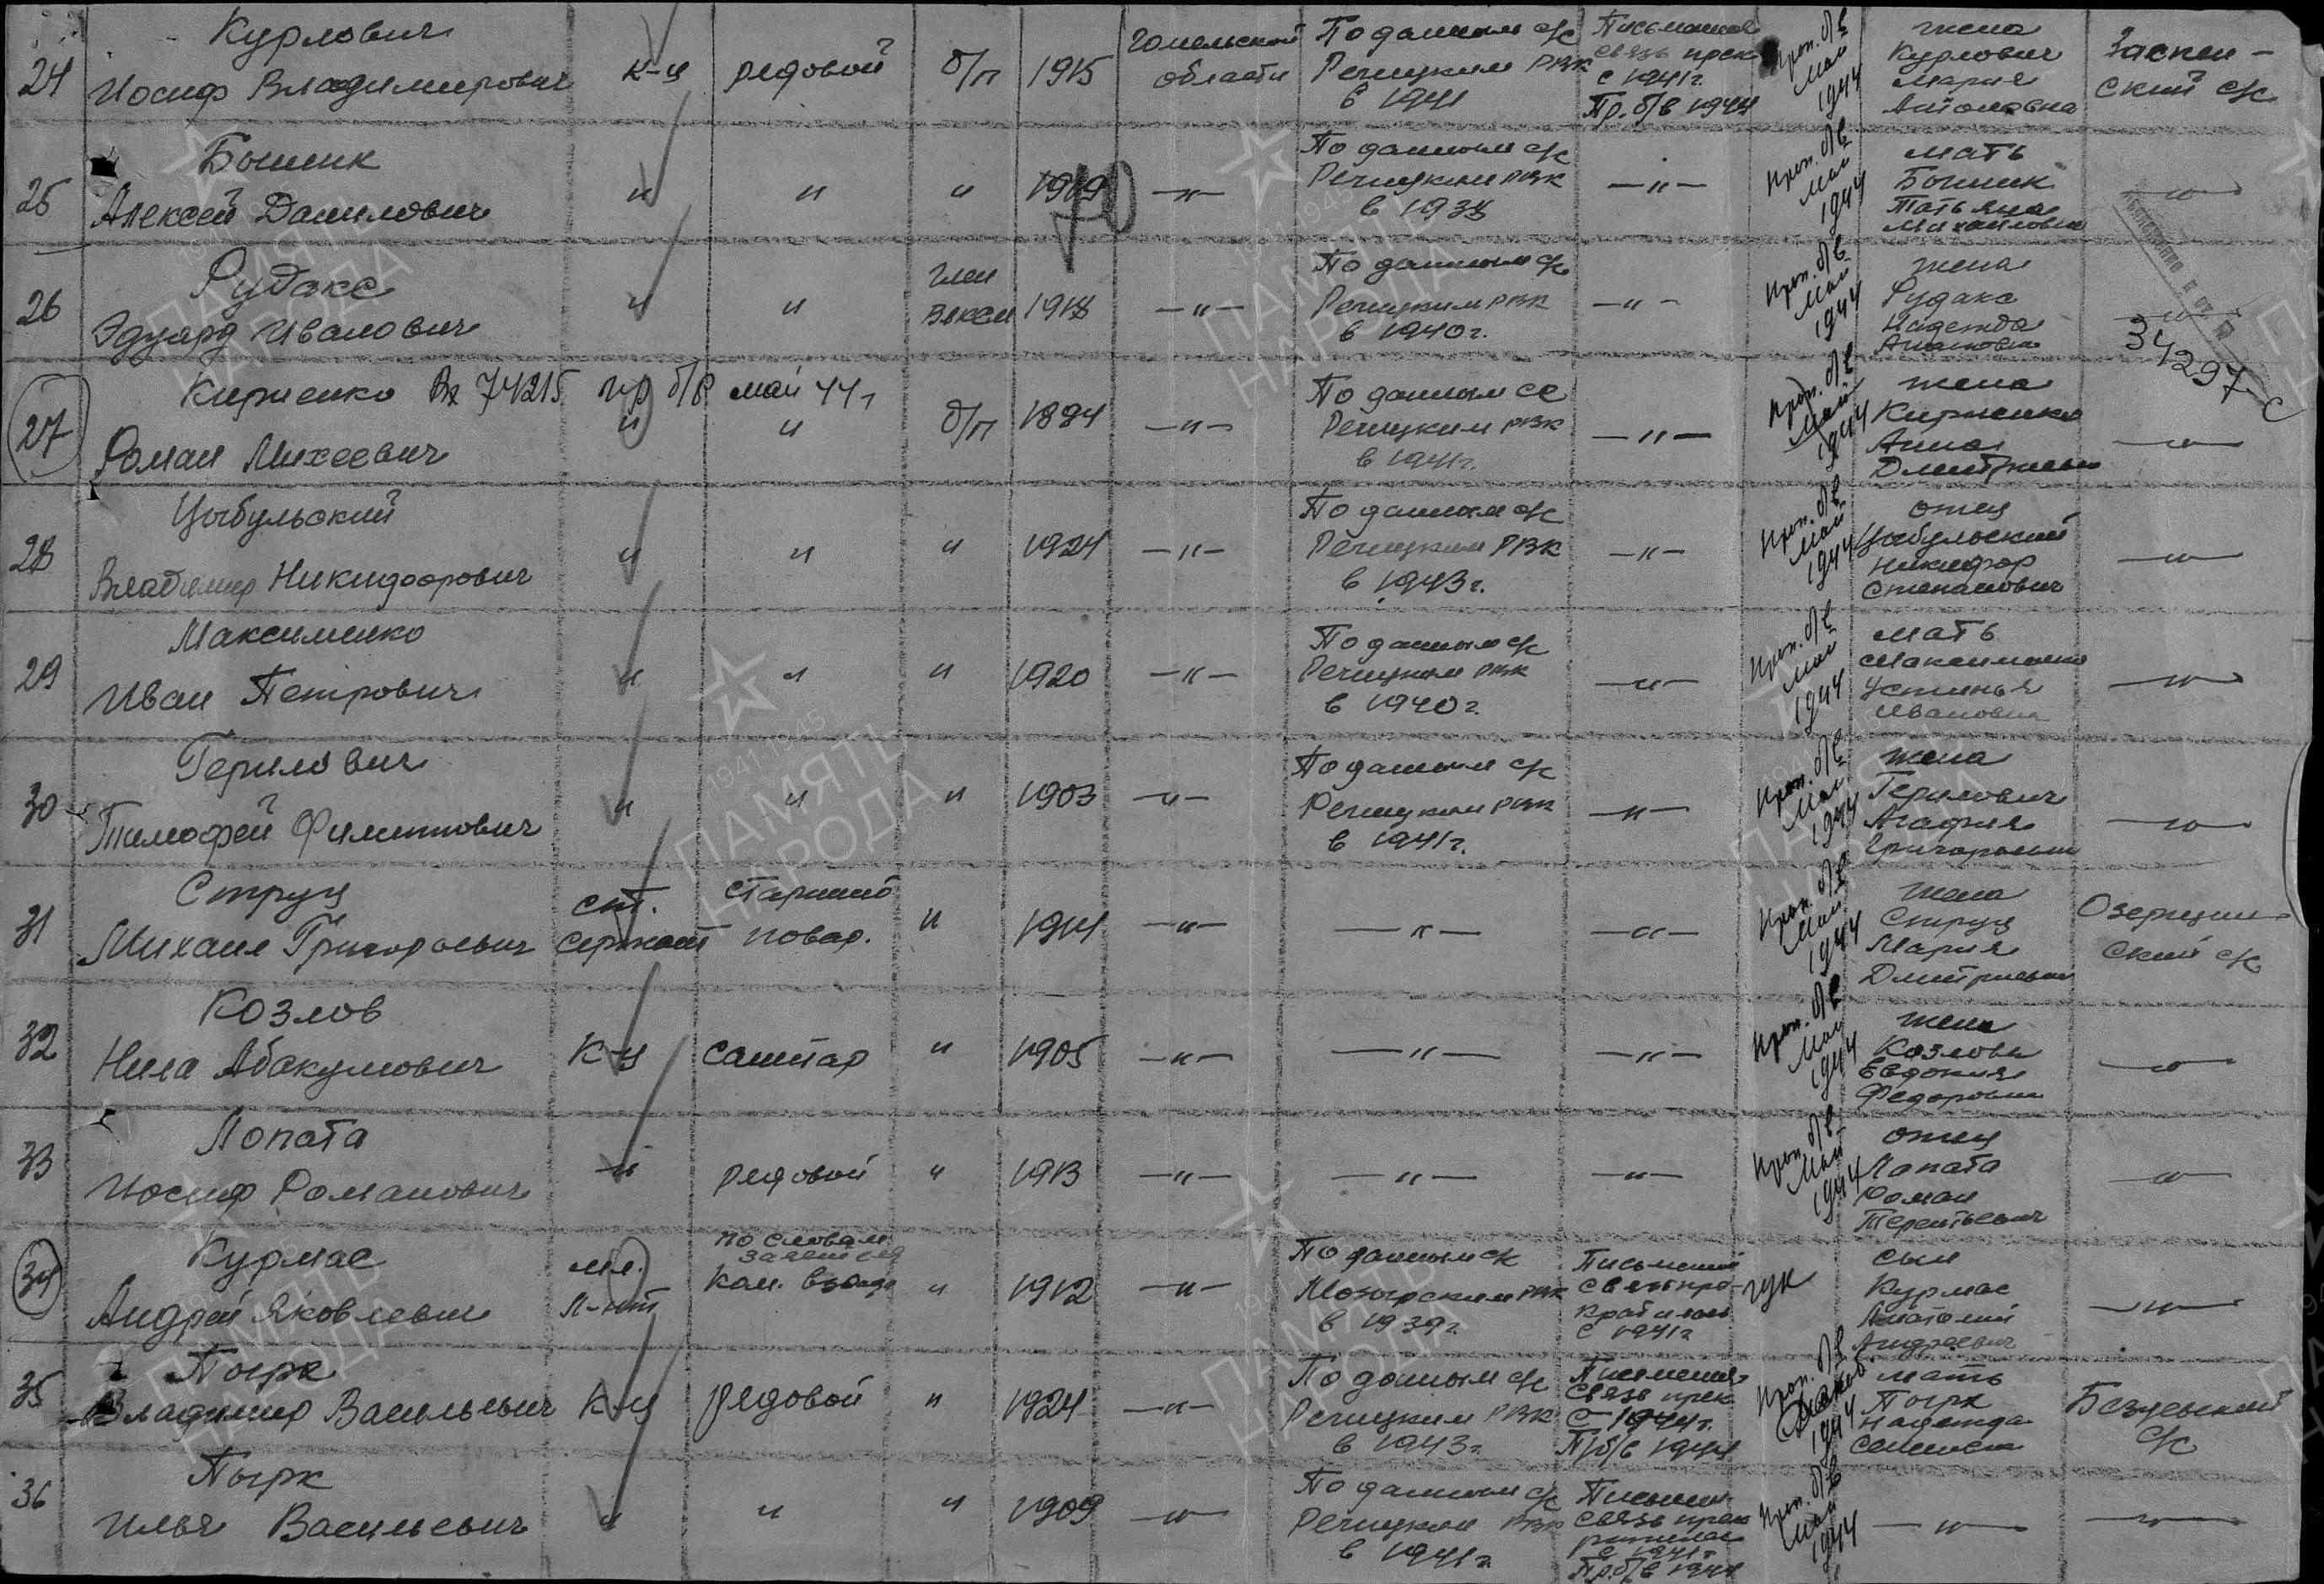 24
Курлович
Иосиф Владимирович
к-ц
рядовой
б/п
1915
Гомельской
области
По данным с/с
Речицким РВК
в 1941
Письменная
связь прек
с 1941г.
Пр. б/в 1944
Проп. б/в
май
1944
жена
Курлович
Мария
Заспен-
ский с/с
25
Бошик
Алексей Данилович
"
"
"
1919
—"—
По данным с/с
Речицким РВК
в 1938
—"—
Проп. б/в
май
1944
мать
Бошик
Татьяна
Михайловна
—"—
26
Рудакс
Эдуард Иванович
"
"
член
ВЛКСМ
1918
—"—
По данным с/с
Речицким РВК
в 1940г.
—"—
Проп. б/в
май
1944
жена
Рудакс
Надежда
—"—
34297 с
27
Кириенко Вх 74215 пр б/в май 44г
Роман Михеевич
"
"
б/п
1894
—"—
По данным сс
Речицким РВК
в 1941г.
—"—
Проп. б/в
май
1944
жена
Кириенко
Анна
Дмитриевна
—"—
28
Цыбульский
Владимир Никифорович
"
"
"
1924
—"—
По данным с/с
Речицким РВК
в 1943г.
—"—
Проп. б/в
май
1944
отец
Цыбульский
Никифор
Степанович
—"—
29
Максименко
Иван Петрович
"
"
"
1920
—"—
По данным с/с
Речицким РВК
в 1940г.
—"—
Проп. б/в
май
1944
мать
Максименко
Устинья
Ивановна
—"—
30
Герилович
Тимофей Филиппович
"
"
"
1903
—"—
По данным с/с
Речицким РВК
в 1941г.
—"—
Проп. б/в
май
1944
жена
Герилович
Агафия
Григорьевна
—"—
31
Струц
Михаил Григорьевич
ст.
сержант
старший
повар.
"
1914
—"—
—"—
—"—
Проп. б/в
май
1944
жена
Струц
Мария
Дмитриевна
Озерщин-
ский с/с
32
Козлов
Нила Абакумович
к-ц
санитар
"
1905
—"—
—"—
—"—
Проп. б/в
май
1944
жена
Козлова
Евдокия
Федоровна
—"—
33
Лопата
Иосиф Романович
—"
рядовой
"
1913
—"—
—"—
—"—
Проп. б/в
май
1944
отец
Лапата
Роман
Терентьевич
—"—
34
Курмас
Андрей Яковлевич
мл.
л-нт
по словам
заявителя
ком. взвода
"
1912
—"—
По данным с/с
Мозырским РВК
в 1939г.
Письменная
связь пре-
кратилась
с 1941г
ГУК
сын
Курмас
Анатолий
Андреевич
—"—
35
Пырк
Владимир Васильевич
к-ц
рядовой
"
1924
—"—
По данным с/с
Речицким РВК
в 1943г.
Письменная
связь прек
с 1944г.
Пр б/в 1944
Проп. б/в
1944
мать
Пырк
Надежда
Семеновна
с/с
36
Пырк
Илья Васильевич
"
"
"
1909
—"—
По данным с/с
Речицким РВК
в 1941г.
Письмен
связь прек
ратилась
с 1941г
Пр.б/в 1944
Проп. б/в
май
1944
—"—
—"—
ПАМЯТЬ
НАРОДА
1941 1945